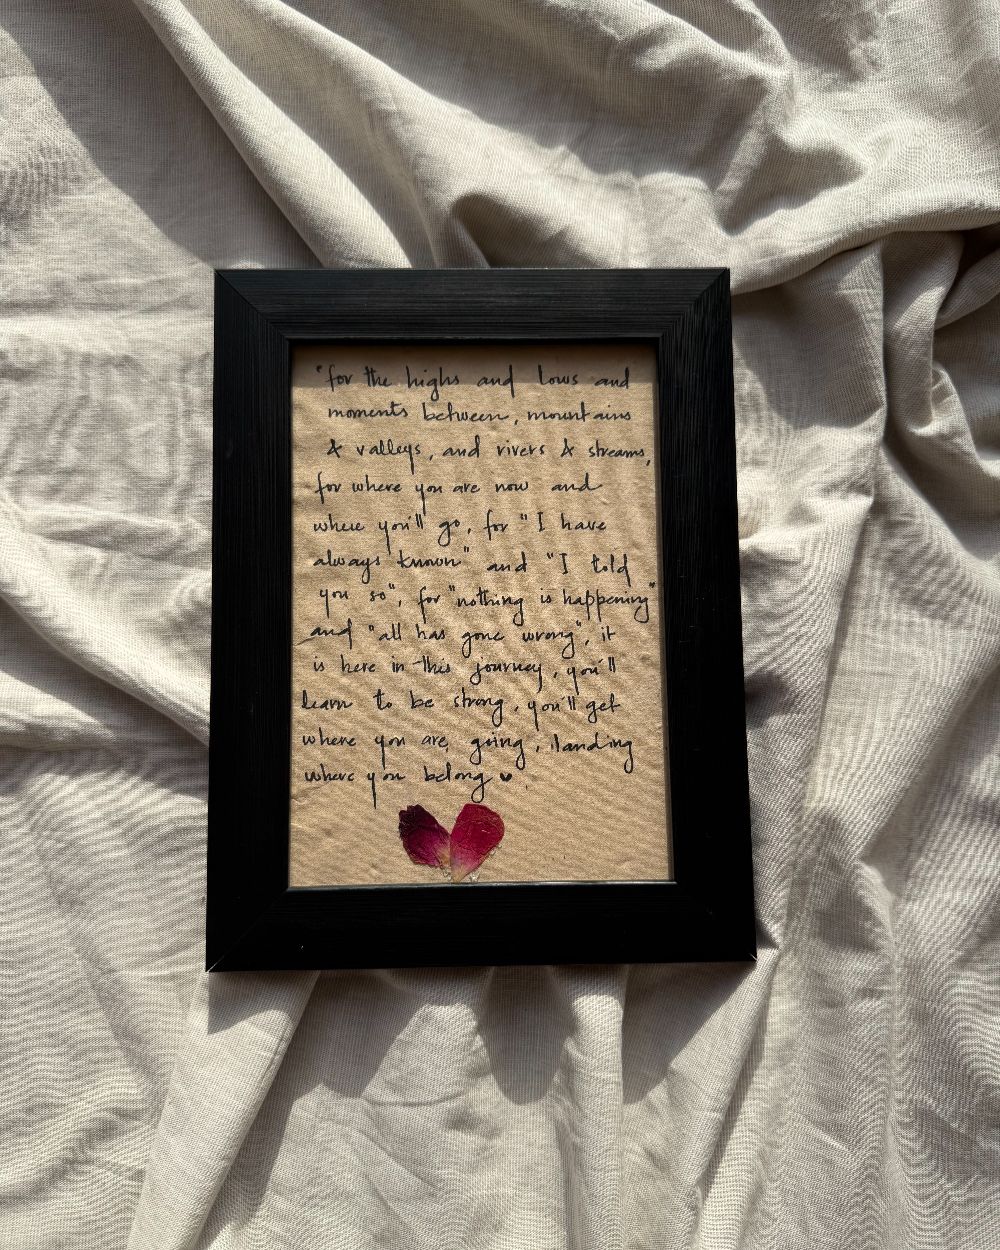 "for the highs and lows and
moments between, mountains
& valleys, and rivers & streams,
for where you are now and
where you'll go, for "I have
always known" and "I told
you so", for "nothing is happening"
and "all has gone wrong", it
is here in this journey, you'll
learn to be strong, you'll get
where you are going, landing
where you belong ♥